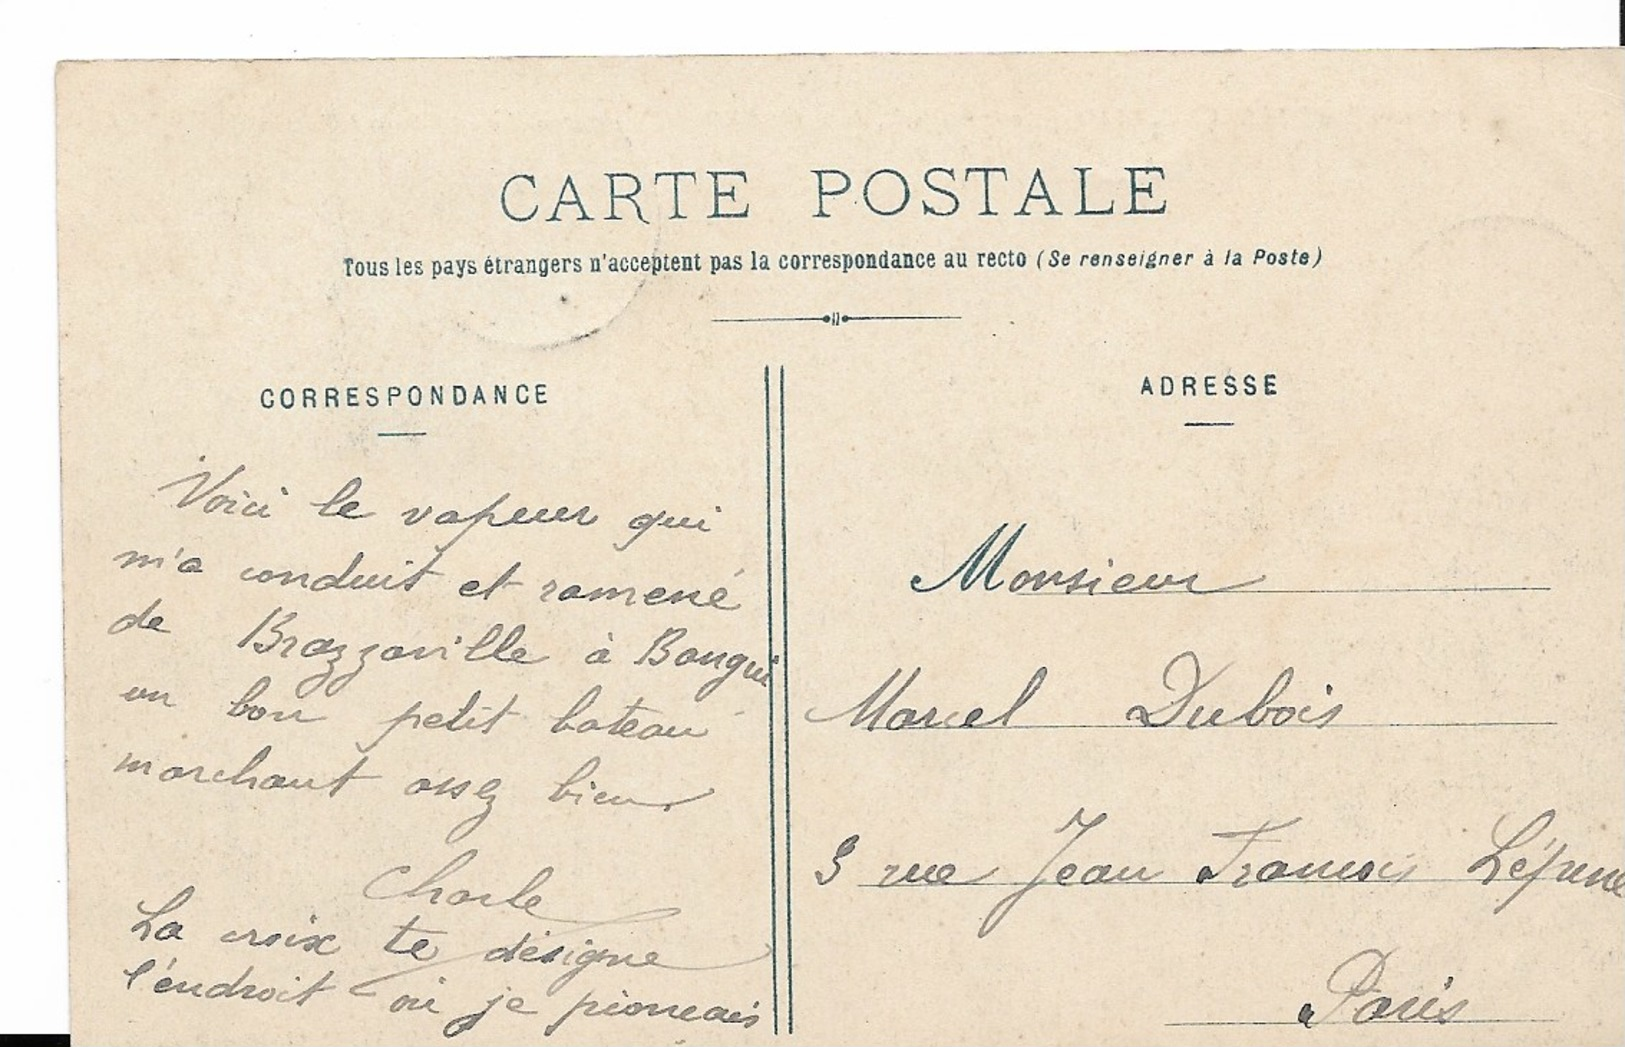 CARTE POSTALE
Tous les pays étrangers n'acceptent pas la correspondance au recto (Se renseigner à la Poste)
CORRESPONDANCE
Voici le vapeur qui
m'a conduit et ramené
de Brazzaville à Bangui
un bon petit bateau
marchant assez bien
Charle
La croix te désigne
l'endroit où je pionçais
ADRESSE
Monsieur
Marcel Dubois
3 rue Jean François Lépine
Paris